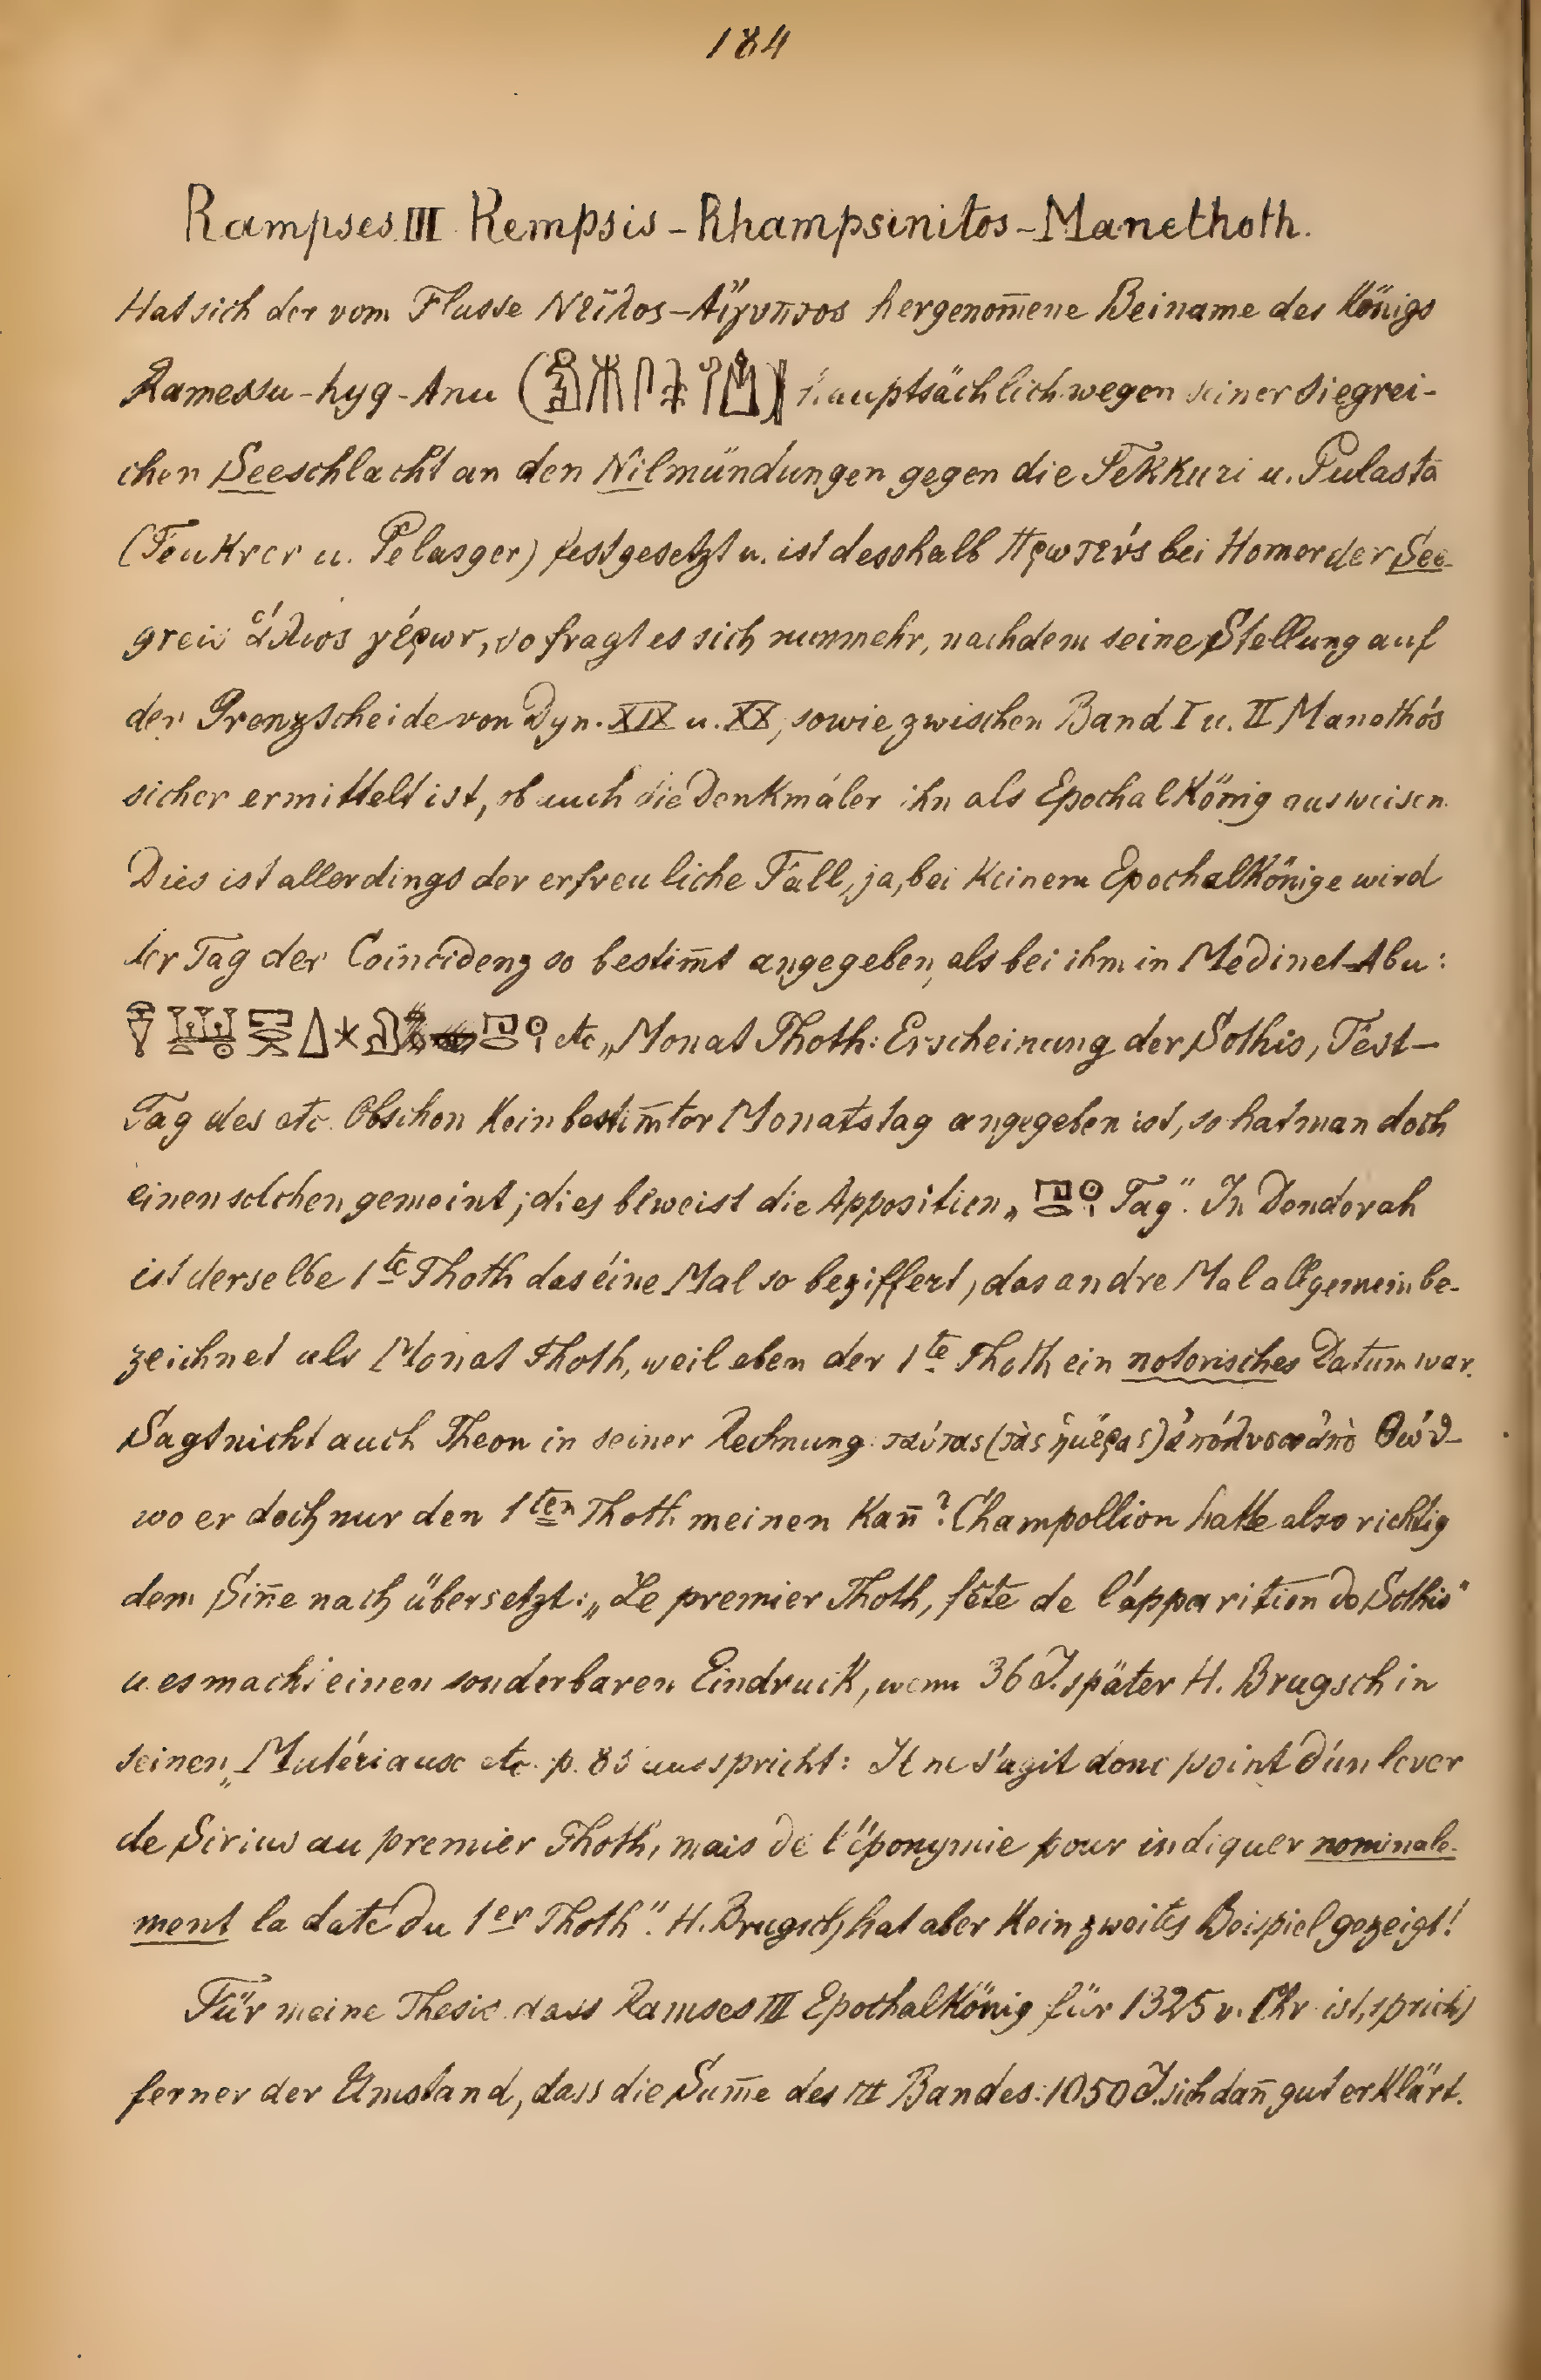 184
Rampses III Rempsis-Rhampsinitos-Manethoth.
Hat sich der vom Flusse Νεῖλος-Αἴγυπτος hergenom̄ene Beiname des Königs
Ramessu-hyq-Anu ( ) hauptsächlich wegen seiner siegrei-
chen Seeschlacht an den Nilmündungen gegen die Tekkuri u. Pulasta
(Teukrer u. Pelasger) festgesetzt u. ist desshalb Πρωτεύς bei Homer der See-
greis ἅλιος γέρων, so fragt es sich nunmehr, nachdem seine Stellung auf
der Grenzscheide von Dyn. XIX u. XX, sowie zwischen Band I u. II Manethós
sicher ermittelt ist, ob auch die Denkmäler ihn als Epochalkönig ausweisen.
Dies ist allerdings der erfreuliche Fall, ja, bei keinem Epochalkönige wird
der Tag der Coincidenz so bestim̄t angegeben, als bei ihm in Medinet-Abu:
etc „Monat Thoth: Erscheinung der Sothis, Fest-
Tag des etc. Obschon kein bestim̄ter Monatstag angegeben ist, so hat man doch
einen solchen gemeint; dies beweist die Apposition „ Tag". In Denderah
ist derselbe 1te Thoth das éine Mal so beziffert, das andre Mal allgemein be-
zeichnet als Monat Thoth, weil eben der 1te Thoth ein notorisches Datum war.
Sagt nicht auch Theon in seiner Rechnung ταύτας (τὰς ἡμέρας) ἀπόλυσον ἀπὸ Θώθ-
wo er doch nur den 1ten Thoth meinen kan̄? Champollion hatte also richtig
dem Sin̄e nach übersetzt: „Le premier Thoth, fête de l'apparition de Sothis"
u. es macht einen sonderbaren Eindruck, wenn 36 J. später H. Brugsch in
seinen „Matériaux etc. p. 83 ausspricht: Il ne s'agit donc point d'un lever
de Sirius au premier Thoth, mais de l'éponymie pour indiquer nominale-
ment la date du 1er Thoth". H. Brugsch hat aber kein zweites Beispiel gezeigt!
Für meine Thesis dass Ramses III Epochalkönig für 1325 v. Chr. ist, spricht
ferner der Umstand, dass die Sum̄e des III Bandes: 1050 J. sich dan̄ gut erklärt.